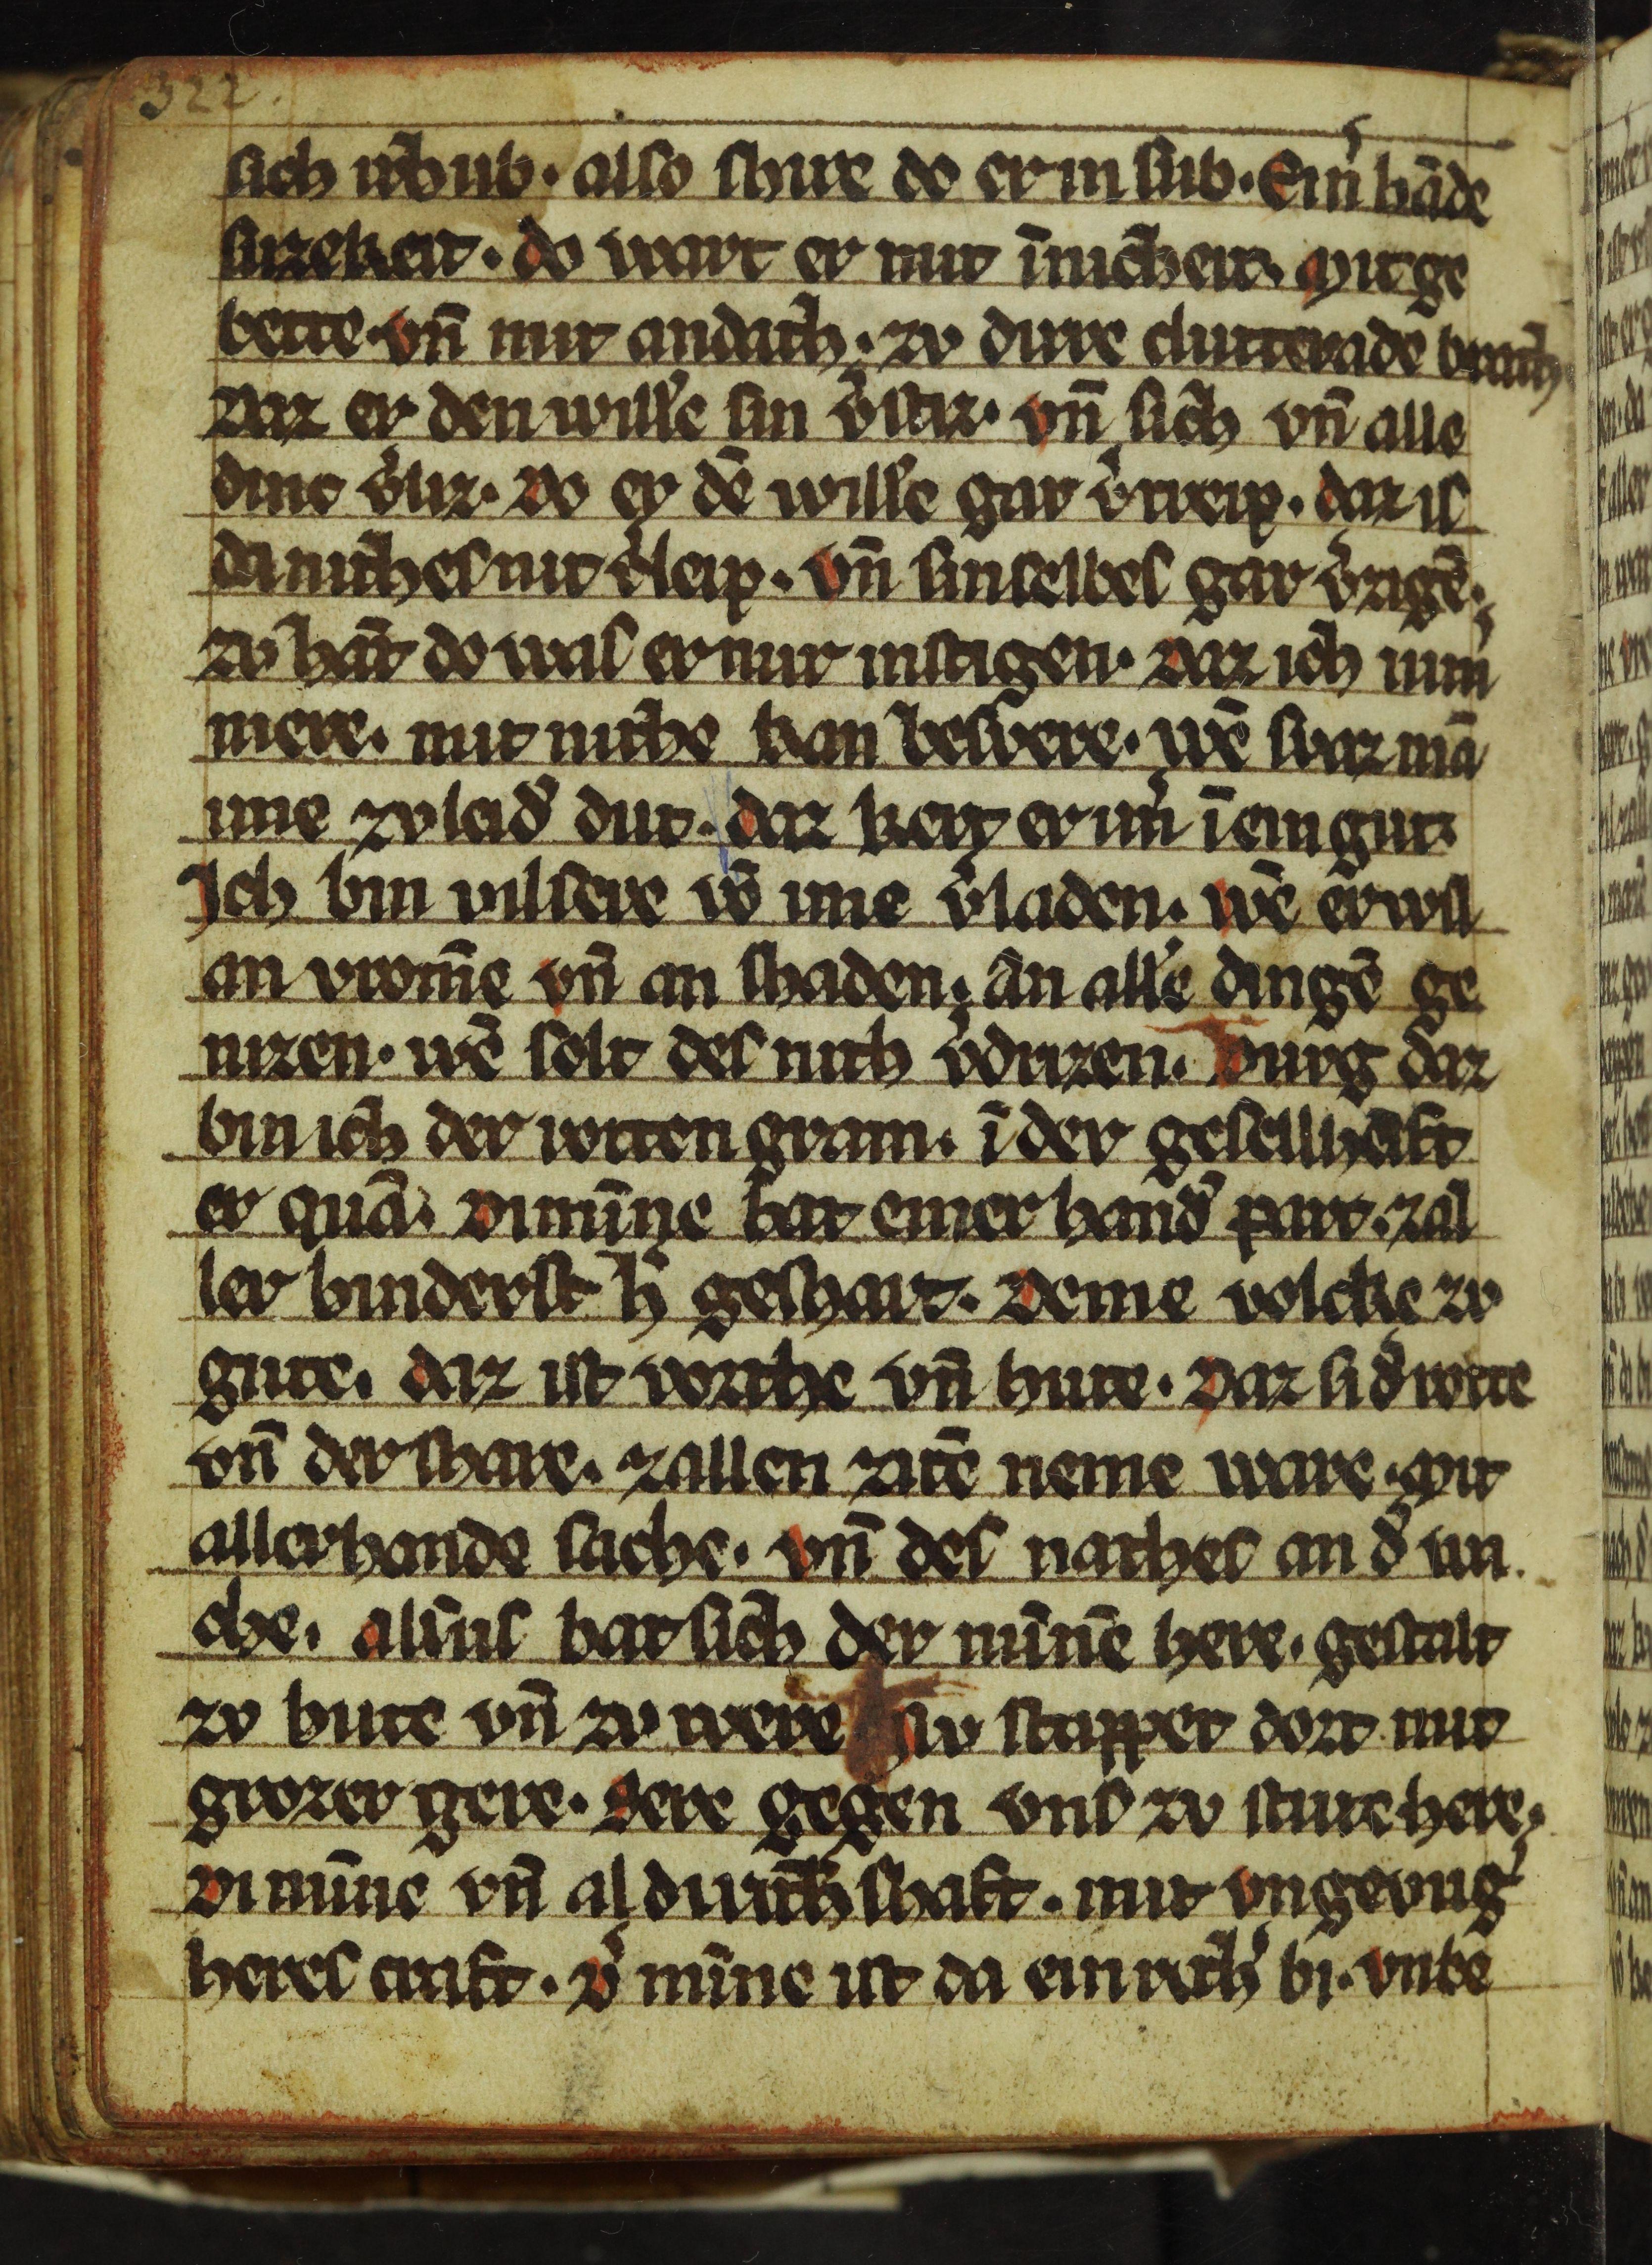 322.
sich vͬhub. also shire do er in sub. Einͬ hāde
suzekeit. do wart er mit īnicheit. Mit ge
bette vn̄ mit andath. zv dure clutterāde brath
Daz er den wille sin vͬstiz. vn̄ sich vn̄ alle
dinc vͬliz. Do er dē wille gar vͬtreip. daz is
da nithes nit vͬleip. Vn̄ sinselbes gar vͬzigē.
zv hāt do was er mir instigen. Daz ich nimͬ
mere. mit nithe kan besvere. wē svaz mā
ime zvleidͬ dut. daz kert er imͬ ī ein gut
Ich bin vilsere vō ime vͬladen. wē er wil
an vrome vn̄ an shaden. an allē dingē ge
nizen. wē solt des nith vͬdrizen. Durg daz
bin ich der rotten gram. ī der gesellsheaft
er quā. Di mīnne hat einer handͬ part. zal
ler hinderst hͬ geshart. Deme volcke zv
gute. daz ist vorthe vn̄ hute. Daz si dͬ rotte
vn̄ der share. zallen zitē neme ware. Mit
allerhande sache. vn̄ des nathes an dͬ wa
che. alsus hat sich der minnē here. gestalt
zv hute vn̄ zv were Hiv stapfet dort mit
grozer gere. Here gegen vns zv strite here.
Di minne vn̄ al dͬ rithshaft. mit vngevugͬ
heres craft. Vͬ mīnne ist da ein rethͬ bi. vnbe